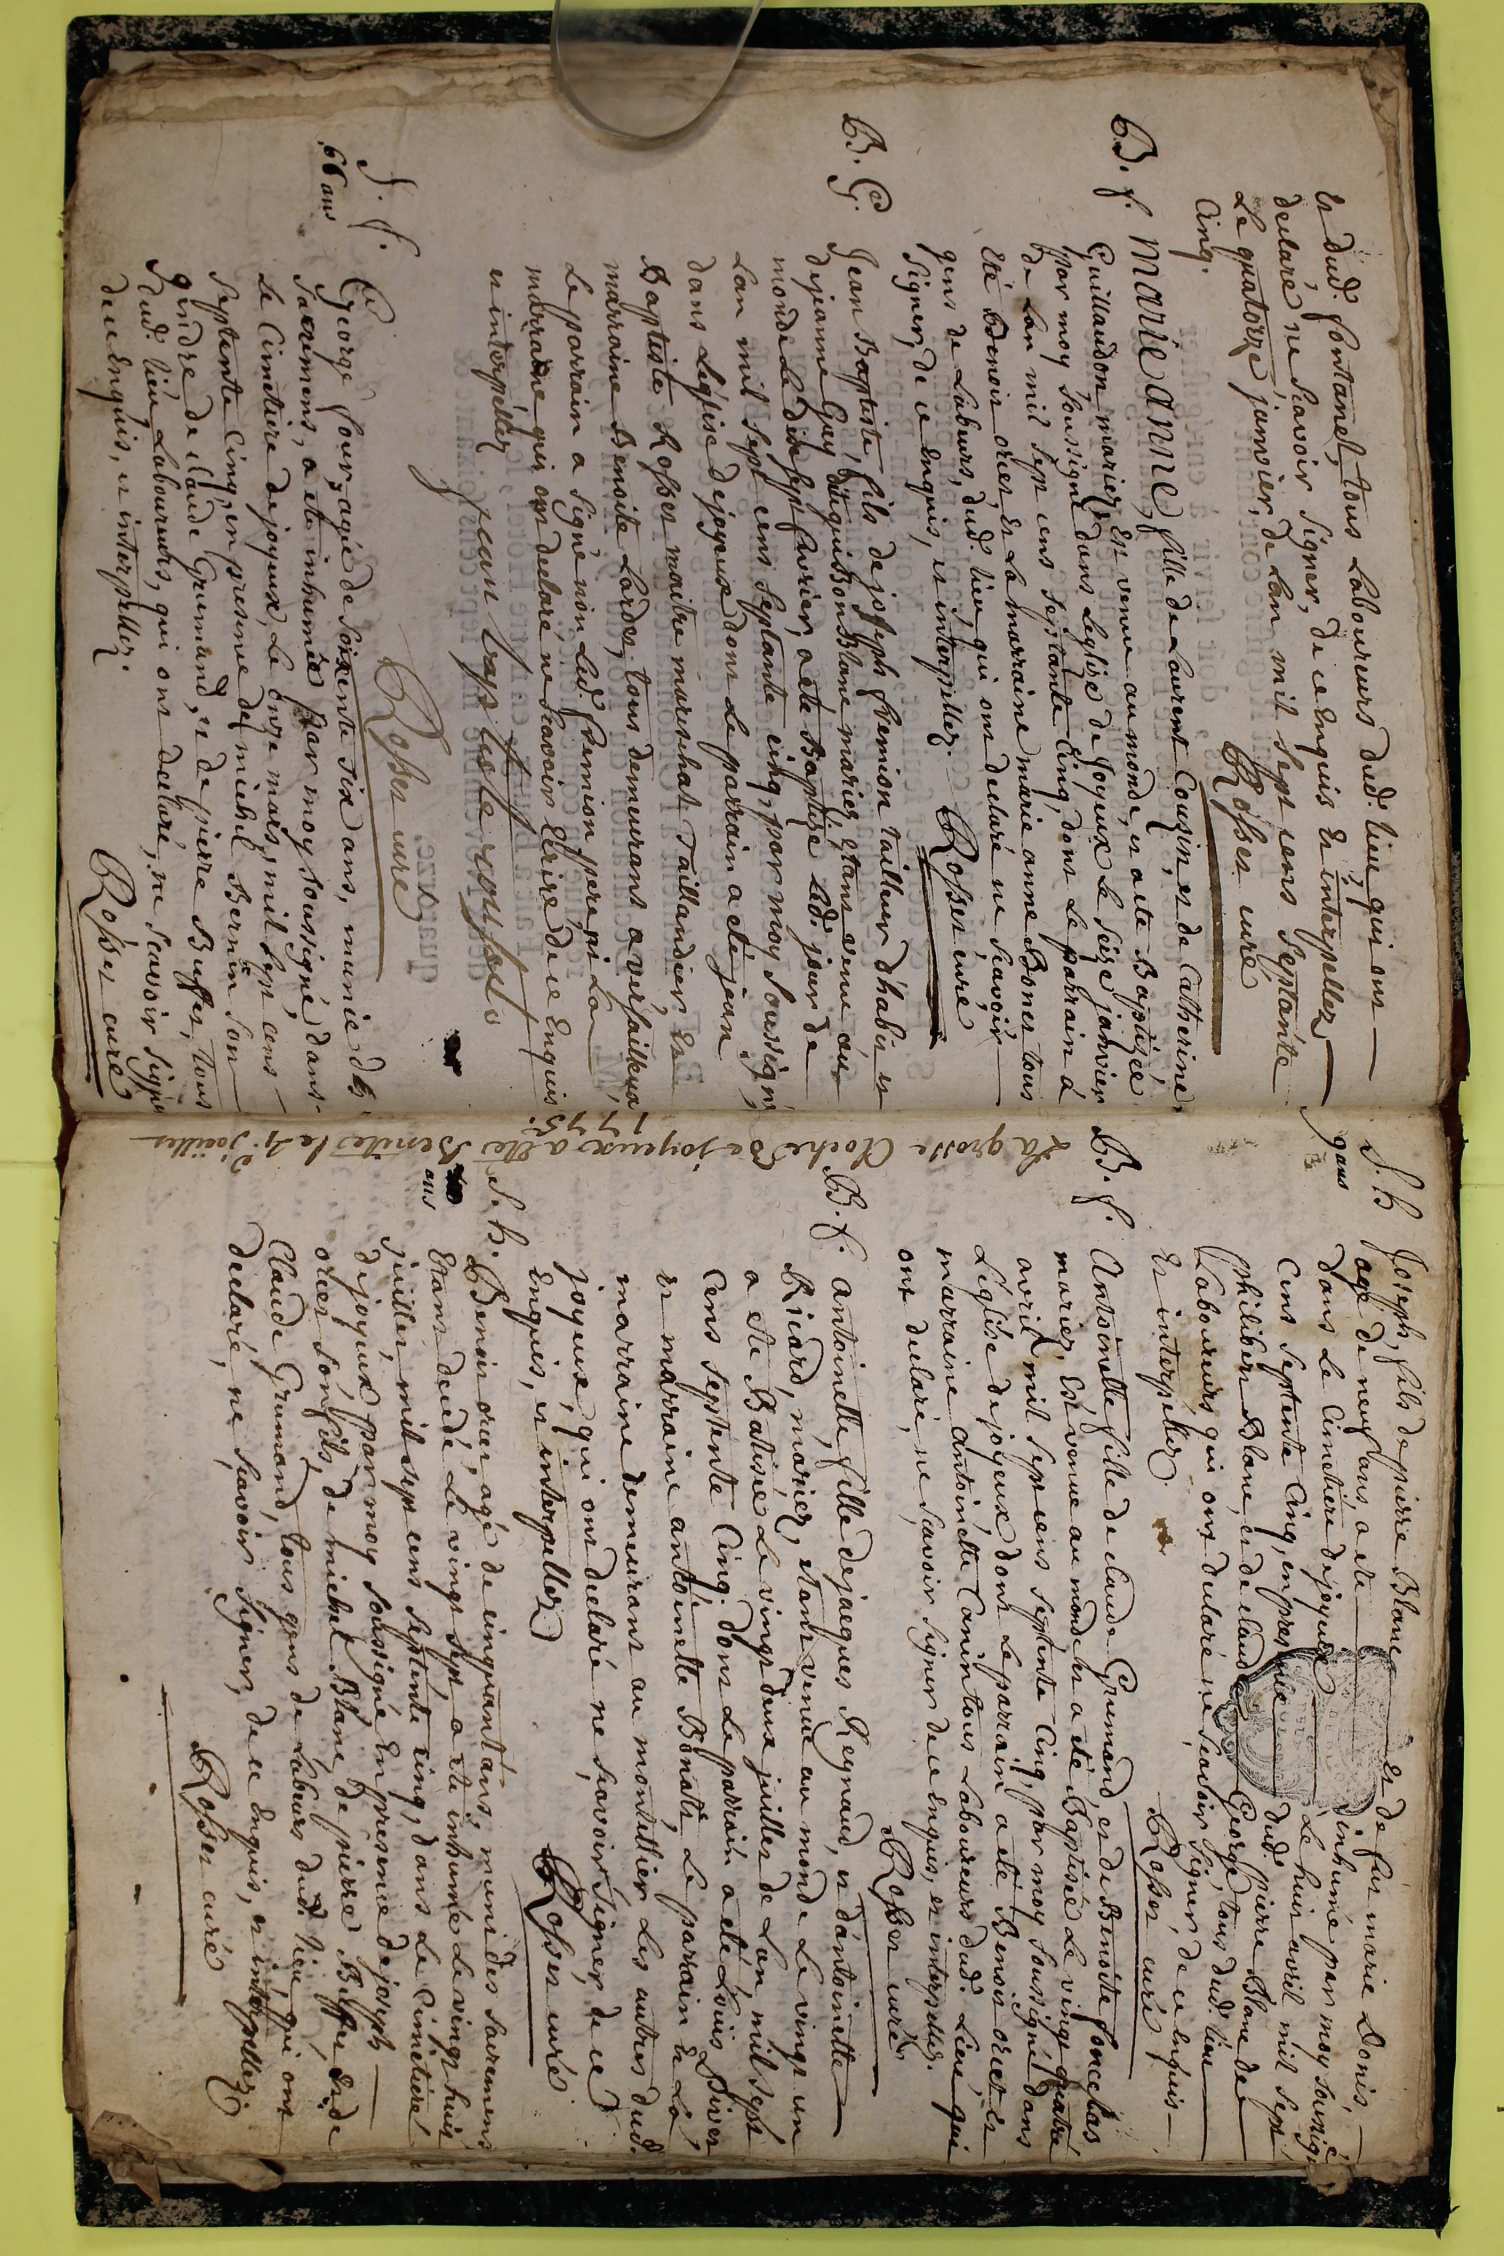 Et dud. fontanel, tous Laboureurs dud. lieu qui ont
declaré ne Scavoir Signer, de ce Enquis Et interpellez
Le quatorze janvier, de L'an mil Sept cens Septante
Cinq. Rosset curé
B. f. marie anne, fille de Laurent Cousin, et de Catherine
Guillaudon mariez Est venue au monde, et a eté Baptizée
par moy Soussigné dans Leglise de Joyeux le Seize janvier
de Lan mil Sept cens Septante Cinq, dont Le parrain à
Eté Benoit orcet, Et La marraine marie anne Bonet tous
gens de Labeurs, dud. lieu, qui ont declaré ne Scavoir
Signer, de ce Enquis, et interpellez. Rosset curé
B. G. Jean Baptiste, fils de joseph fremion tailleur d'habit et
de jeanne Guy Blanc mariez, étant venu au
monde Le dix Sept fevrier, a eté Baptizé led. jour de
Lan mil Sept cens Septante cinq, par moy Soussigné,
dans Léglise de joyeux dont Le parrain a eté jean
Baptiste Rosset maitre mareschal Taillandier, Et
marraine Benoite Lardet, tous demeurans a versailleux
Le parrain a Signé non Led. fremion pere, ni La
marraine qui ont declaré ne Scavoir Ecrire de ce Enquis
et interpellez
jean baptiste rousset
Rosset curé
S. f.
66 ans
George Four, agé de Soixente Six ans, munie des
Sacremens, a eté inhumée par moy Soussigné dans
Le Cimetiere de joyeux, Le onze mars, mil Sept cens
Septante Cinq, en presence de michel Bernin Son
gendre de claude Grumand, et de pierre Buffet, tous
dud. lieu Laboureurs, qui ont declaré, ne Scavoir Signer
de ce Enquis, et interpellez. Rosset curé
La grosse Cloche De joyeux a ete Benites le 4. Juillet
1775.
S. h
9 ans
Joseph, fils de pierre Blanc Et de fut marie Donis,
agé de neuf ans, a eté inhumé par moy Soussigné
dans Le Cimetiere de joyeux Le huit avril mil Sept
Cens Septente Cinq, en presence dud. pierre Blanc de
philibert Blanc, et de claude George, tous dud. lieu
Laboureurs qui ont declaré ne Scavoir Signer de ce Enquis
Et interpellez. Rosset curé
B. f. Antoinette, fille de claude Grumand, et de Benoite foncelas
mariez, Est venue au monde Et a eté Baptisée Le vingt quatre
avril mil Sept cens Septente Cinq, par moy Soussigné dans
L'église de joyeux dont Le parrain a eté Benoit orcet Et
marraine antoinette Canin tous Laboureurs dud. Lieu, qui
ont declaré, ne Scavoir Signer de ce Enquis, et interpellez.
Rosset curé
B. f. antoinette, fille de jacques Reynaud, et d'antoinette
Ricard, mariez, etant venue au monde Le vingt un
a ete Batisée Le vingt deux juillet de Lan, mil Sept
Cens Septente Cinq. dont Le parrain a eté Louis Divet
et marraine antoinette Bonate, Le parrain Et La
marraine demeurant au montellier, Les autres dud.
joyeux, qui ont declaré ne Scavoir Signer, de ce
Enquis, et interpellez Rosset curé
S. h.
ans
Benoit orcet agé de cinquant'ans, muni des Sacremens
Etant decedé Le vingt Sept a eté inhumé Le vingt huit
juillet mil Sept cens Septente cinq, dans Le Cimetiere
de joyeux par moy Soussigné En presence de joseph
orcet Son fils, de michel Blanc, de pierre Buffet Et de
Claude Grumand, tous gens de Labeurs dud. lieu, qui ont
declaré, ne Scavoir Signer, de ce Enquis, et interpellez
Rosset curé